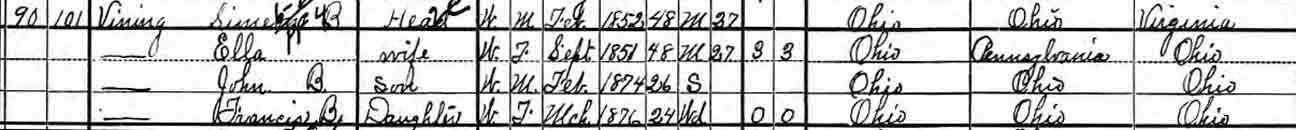 90 101 Vining B Head W. M. Feb. 1852 48 M 27 Ohio Ohio Virginia
— Ella wife W. F. Sept. 1851 48 M 27 3 3 Ohio Pennsylvania Ohio
— John B. Son W. M. Feb. 1874 26 S Ohio Ohio Ohio
— Francis B. Daughter W. F. Mch. 1876 24 Wd 0 0 Ohio Ohio Ohio